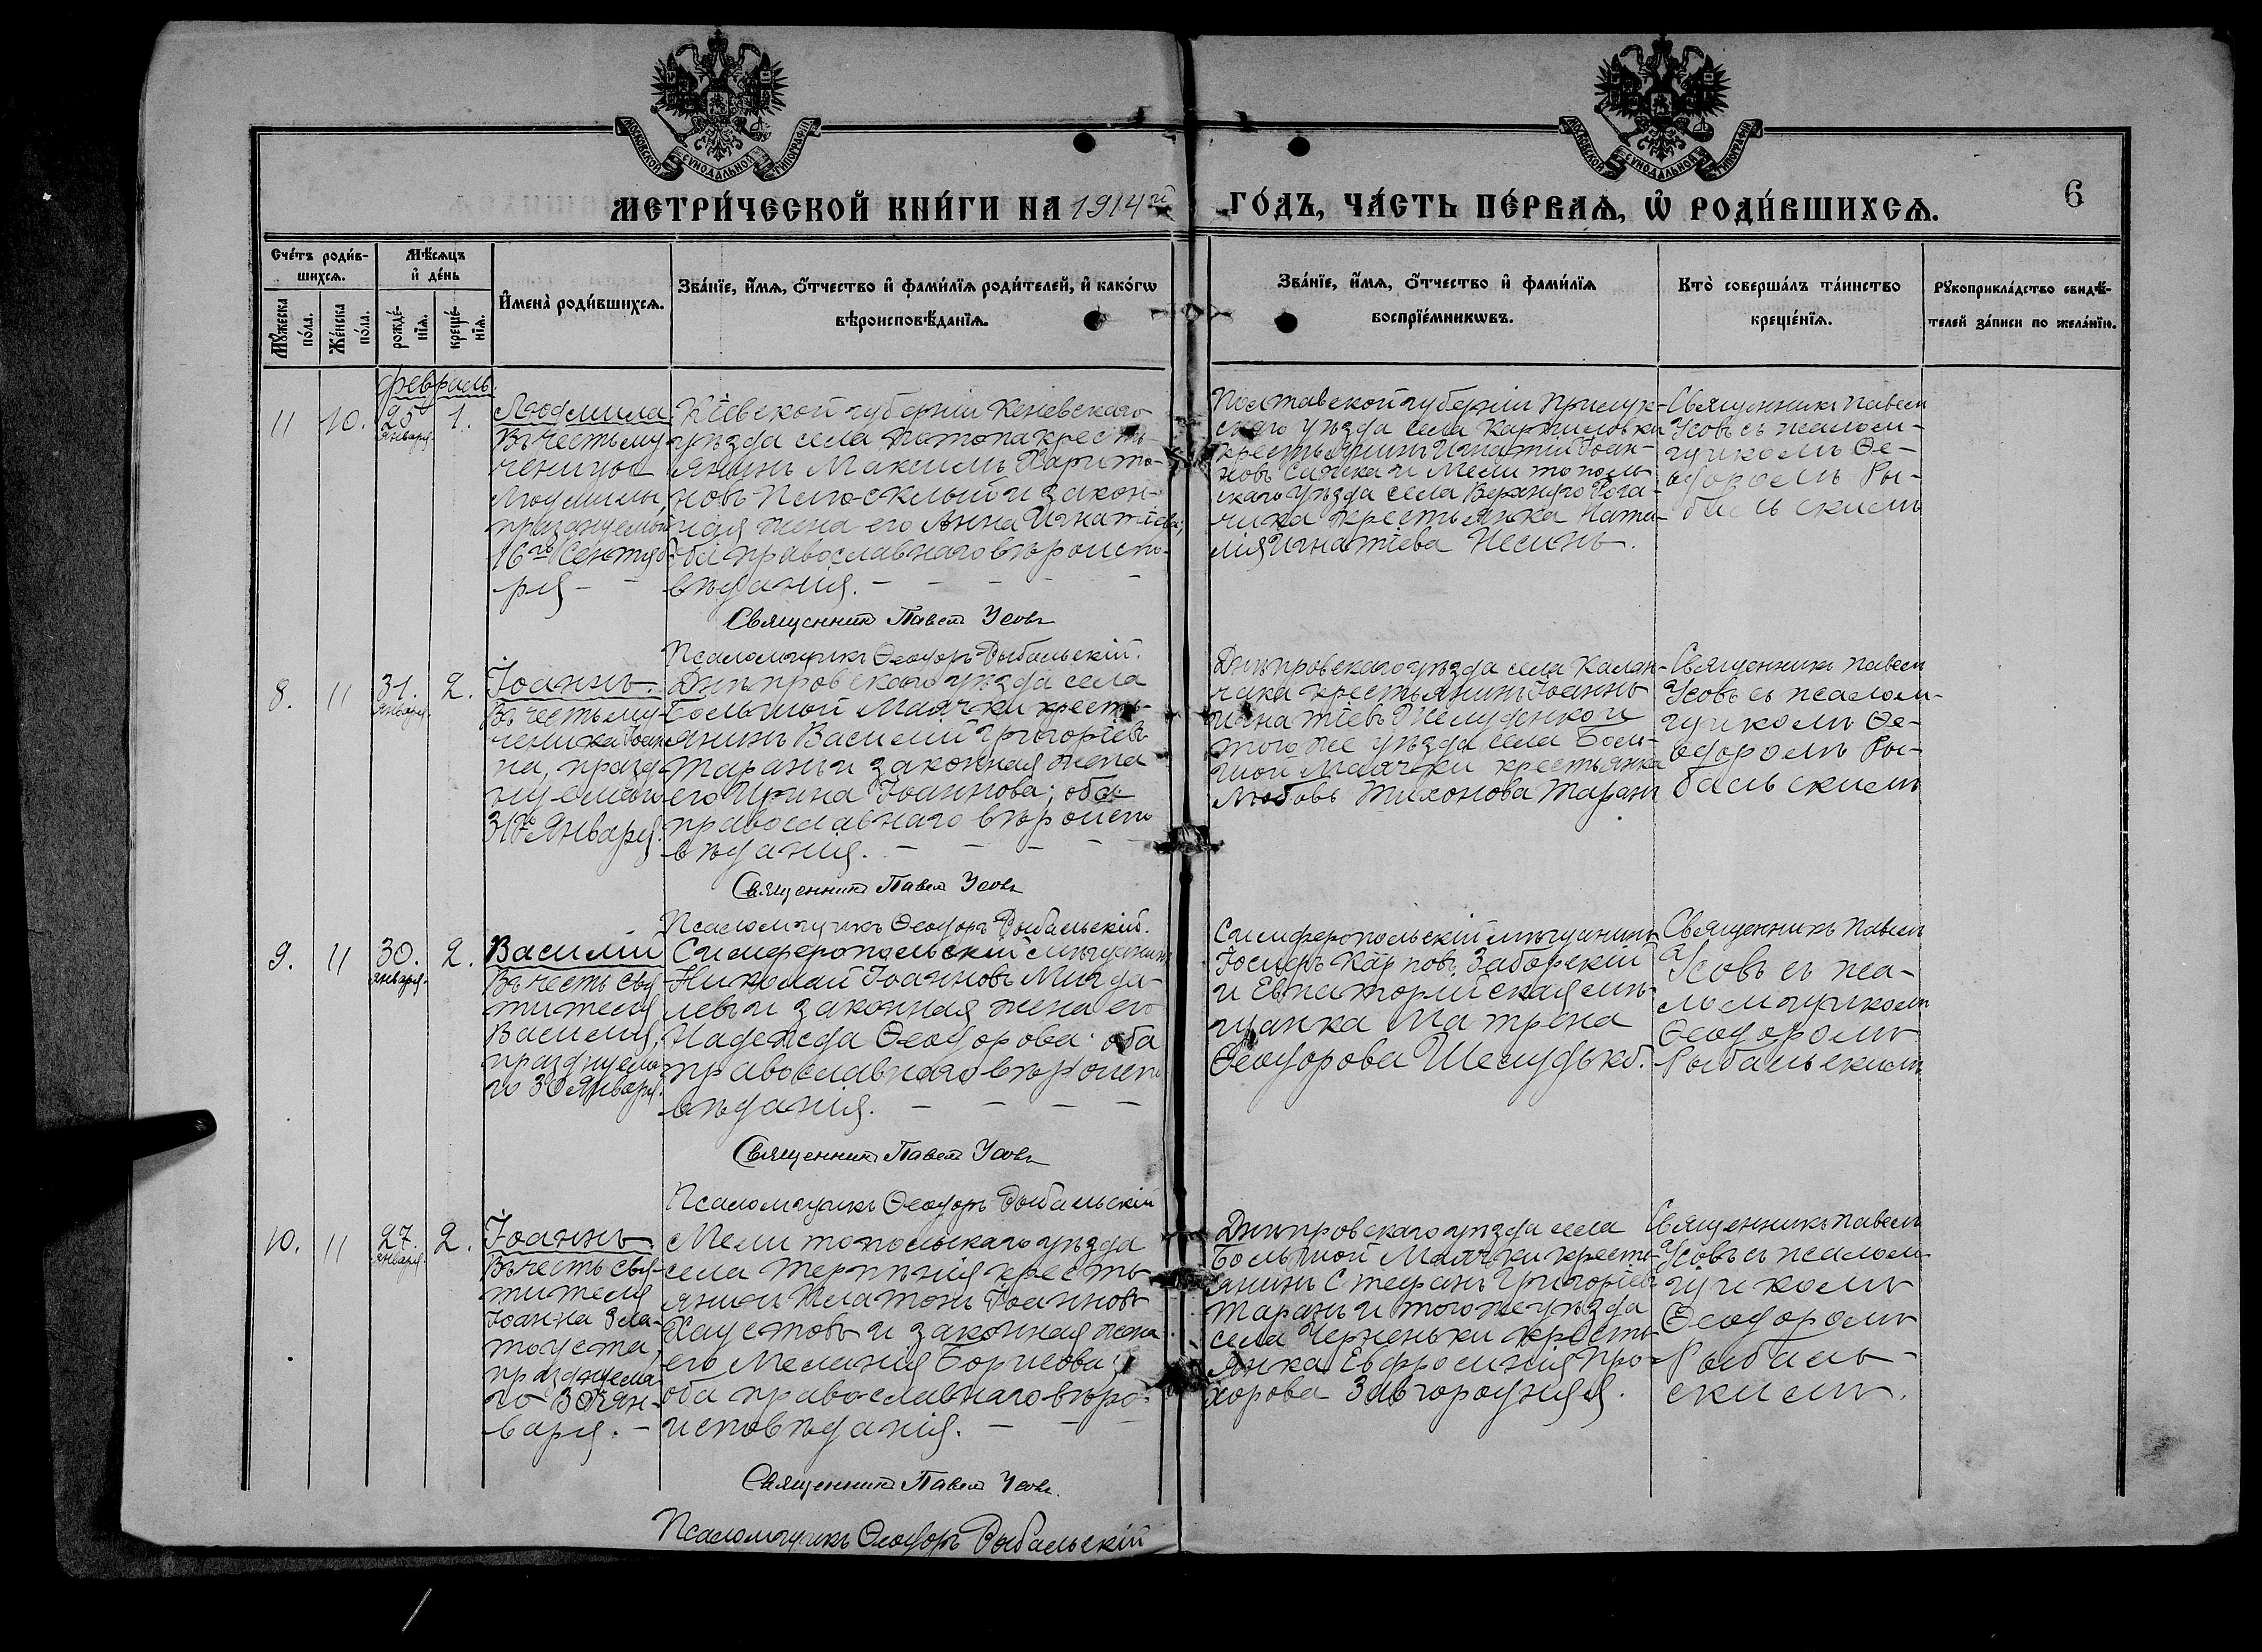 МОСКОВСКОЙ СУНОДАЛЬНОЙ ТИПОГРАФІИ
МОСКОВСКОЙ СУНОДАЛЬНОЙ ТИПОГРАФІИ
МЕТРИ́ЧЕСКОЙ КНИ́ГИ НА 1914й ГО́ДЪ, ЧА́СТЬ ПЕ́РВАѦ, Ѡ҆ РОДИ́ВШИХСѦ.
6
Сче́тъ роди́в-
шихсѧ.
Мѣ́сѧцъ
и҆ де́нь
Мꙋ́жеска
по́ла.
Же́нска
по́ла.
рожде́-
нїѧ.
креще́-
нїѧ.
И҆мена̀ роди́вшихсѧ.
Зва́нїе, и҆́мѧ, ѻ҆́тчество и҆ фами́лїѧ роди́телей, и҆ како́гѡ
вѣроисповѣ́данїѧ.
Зва́нїе, и҆́мѧ, ѻ҆́тчество и҆ фами́лїѧ
воспрїе́мникѡвъ.
Кто̀ соверша́лъ та́инство
креще́нїѧ.
Рꙋкоприкла́дство свидѣ́-
телей за́писи по жела́нїю.
февраль.
11
10.
25
января.
1.
Людмила
Въ честь му-
ченицы
Людмилы,
празднуемый
16го Сентяб-
ря -
Кіевской губерніи Каневскаго
уѣзда села Потопа кресть-
янинъ Максимъ Харито-
новъ и закон-
ная жена его Анна Игнатіева;
оба православнаго вѣроиспо-
вѣданія. -
Священникъ Павелъ Усовъ
Псаломщикъ Ѳеодоръ Рыбальскій.
Полтавской губерніи Прилук-
скаго уѣзда села
крестьянинъ Игнатій Іоан-
новъ и Мелитополь-
скаго уѣзда села Верхняго Рога-
чика крестьянка Ната-
лія Игнатіева Несинъ.
Священникъ Павелъ
Усовъ съ псалом-
щикомъ Ѳе-
одоромъ Ры-
бальскимъ
8.
11
31.
января.
2.
Іоаннъ.
Въ честь му-
ченика Іоан-
на, празд-
нуемаго
31го Января.
Днѣпровскаго уѣзда села
Большой Маячки кресть-
янинъ Василий Григоріевъ
Таранъ и законная жена
его Ирина Іоаннова; оба
православнаго вѣроиспо-
вѣданія. -
Священникъ Павелъ Усовъ
Псаломщикъ Ѳеодоръ Рыбальскій.
Днѣпровскаго уѣзда села Калан-
чака крестьянинъ Іоаннъ
Игнатіевъ Шелуденко и
того же уѣзда села Боль-
шой Маячки крестьянка
Любовь Тихонова Таранъ
Священникъ Павелъ
Усовъ съ псалом-
щикомъ Ѳе-
одоромъ Ры-
бальскимъ
9.
11
30.
января.
2.
Василій
Въ честь Свя-
тителя
Василия,
празднуема-
го 30 Января.
Симферопольскій мѣщанинъ
Николай Іоанновъ Мигда-
левъ и законная жена его
Надежда Ѳеодорова; оба
православнаго вѣроиспо-
вѣданія. -
Священникъ Павелъ Усовъ
Псаломщикъ Ѳеодоръ Рыбальскій
Симферопольскій мѣщанинъ
Іосифъ Карповъ Заборскій
и Евпаторійская мѣ-
щанка Матрена
Ѳеодорова Шелудько.
Священникъ Павелъ
Усовъ съ пса-
ломщикомъ
Ѳеодоромъ
Рыбальскимъ
10.
11
27.
января.
2.
Іоаннъ.
Въ честь Свя-
тителя
Іоанна Зла-
тоуста,
празднуема-
го 30го Ян-
варя. -
Мелитопольскаго уѣзда
села Терпѣнія кресть-
янинъ Платонъ Іоанновъ
Хаустовъ и законная жена
его Меланія Борисова;
оба православнаго вѣро-
исповѣданія. -
Священникъ Павелъ Усовъ.
Псаломщикъ Ѳеодоръ Рыбальскій
Днѣпровскаго уѣзда села
Большой Маячки кресть-
янинъ Стефанъ Григоріевъ
Таранъ и того же уѣзда
села Черненьки кресть-
янка Евфросинія Про-
хорова Завгородняя.
Священникъ Павелъ
Усовъ съ псалом-
щикомъ
Ѳеодоромъ
Рыбаль-
скимъ.